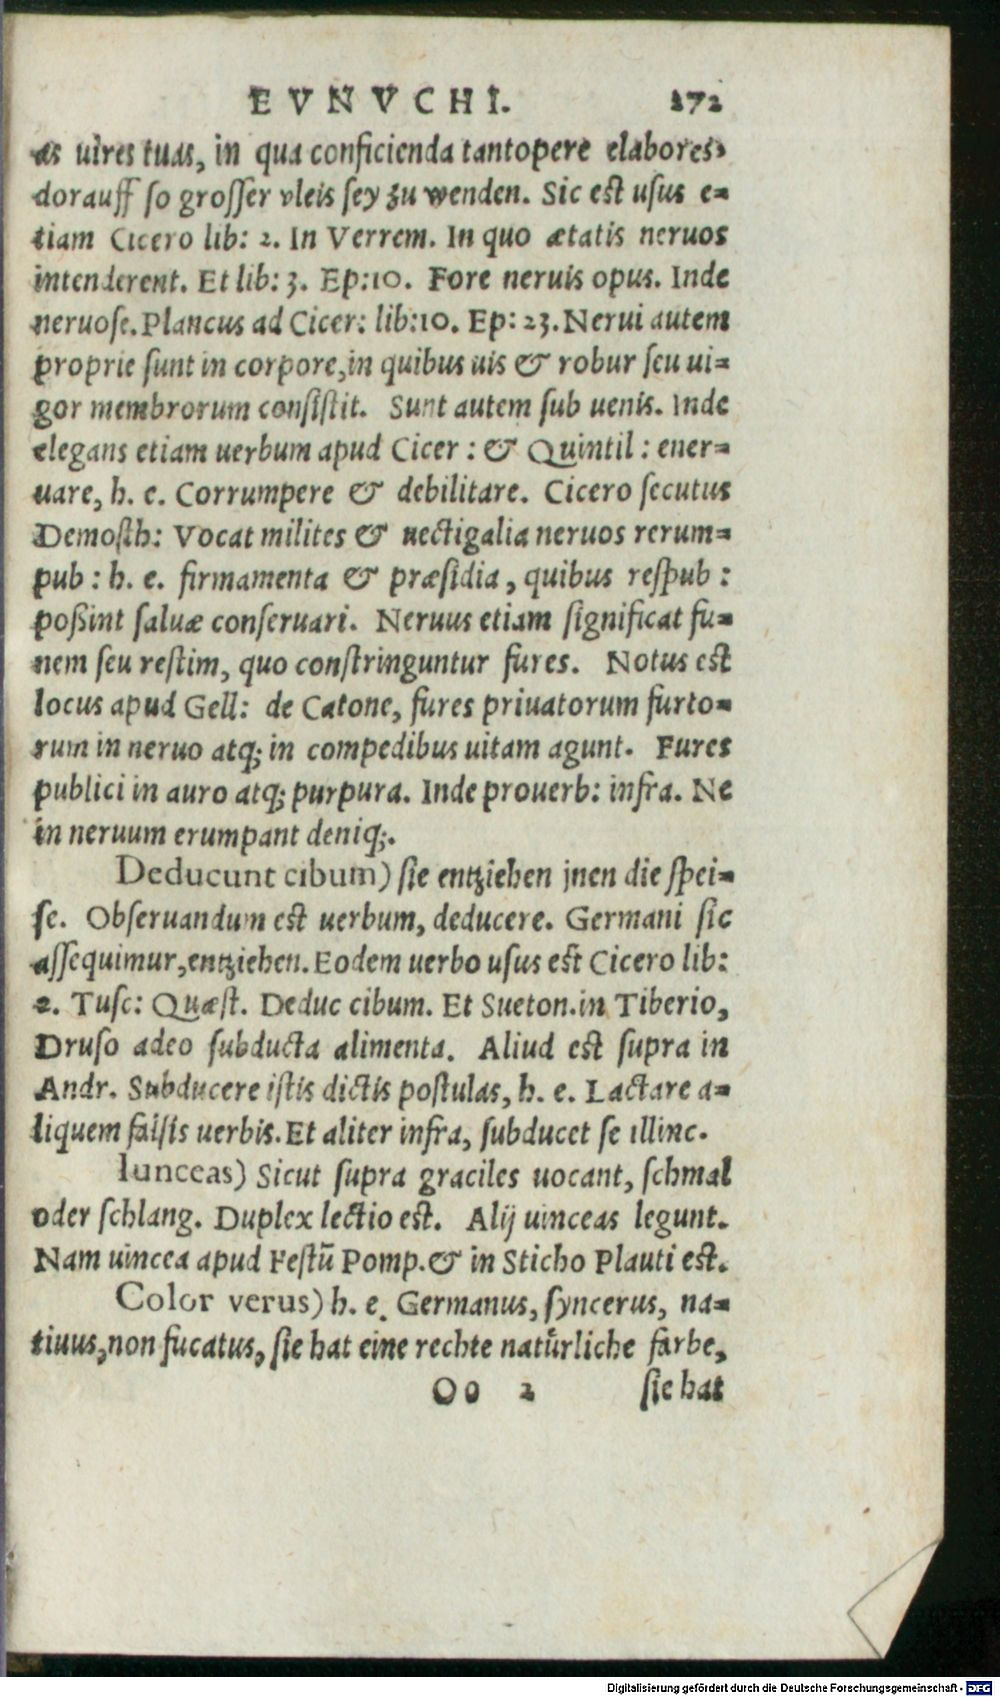 EVNVCHI. 272
as uires tuas, in qua conficienda tantopere elabores,
dorauff so grosser vleis sey zu wenden. Sic est usus e-
tiam Cicero lib: 2. In Verrem. In quo ætatis neruos
intenderent. Et lib: 3. Ep:10. Fore neruis opus. Inde
neruose. Plancus ad Cicer: lib:10. Ep: 23. Nerui autem
proprie sunt in corpore, in quibus uis & robur seu ui-
gor membrorum consistit. Sunt autem sub uenis. Inde
elegans etiam uerbum apud Cicer: & Quintil: ener-
uare, h. e. Corrumpere & debilitare. Cicero secutus
Demosth: Vocat milites & uectigalia neruos rerum-
pub: h. e. firmamenta & præsidia, quibus respub:
poßint saluæ conseruari. Neruus etiam significat fu-
nem seu restim, quo constringuntur fures. Notus est
locus apud Gell: de Catone, fures priuatorum furto-
rum in neruo atq; in compedibus uitam agunt. Fures
publici in auro atq; purpura. Inde prouerb: infra. Ne
in neruum erumpant deniq;.
Deducunt cibum) sie entziehen jnen die spei-
se. Obseruandum est uerbum, deducere. Germani sic
assequimur, entziehen. Eodem uerbo usus est Cicero lib:
2. Tusc: Quæst. Deduc cibum. Et Sueton. in Tiberio,
Druso adeo subducta alimenta. Aliud est supra in
Andr. Subducere istis dictis postulas, h. e. Lactare a-
liquem falsis uerbis. Et aliter infra, subducet se illinc.
Iunceas) Sicut supra graciles uocant, schmal
oder schlang. Duplex lectio est. Alij uinceas legunt.
Nam uincea apud Festū Pomp. & in Sticho Plauti est.
Color verus) h. e. Germanus, syncerus, na-
tiuus, non fucatus, sie hat eine rechte natuͤrliche farbe,
Oo 2 sie hat
Digitalisierung gefördert durch die Deutsche Forschungsgemeinschaft - DFG